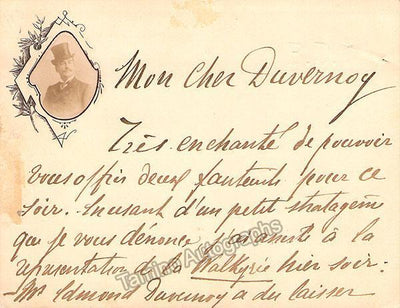 Mon Cher Duvernoy
Très enchanté de pouvoir
vous offrir deux fauteuils pour ce
soir. En usant d'un petit stratagème
que je vous dénonce, j'assistai à la
représentation de la Walkyrie hier soir:
Mr Edmond Duvernoy a du laisser
Tamino Autographs